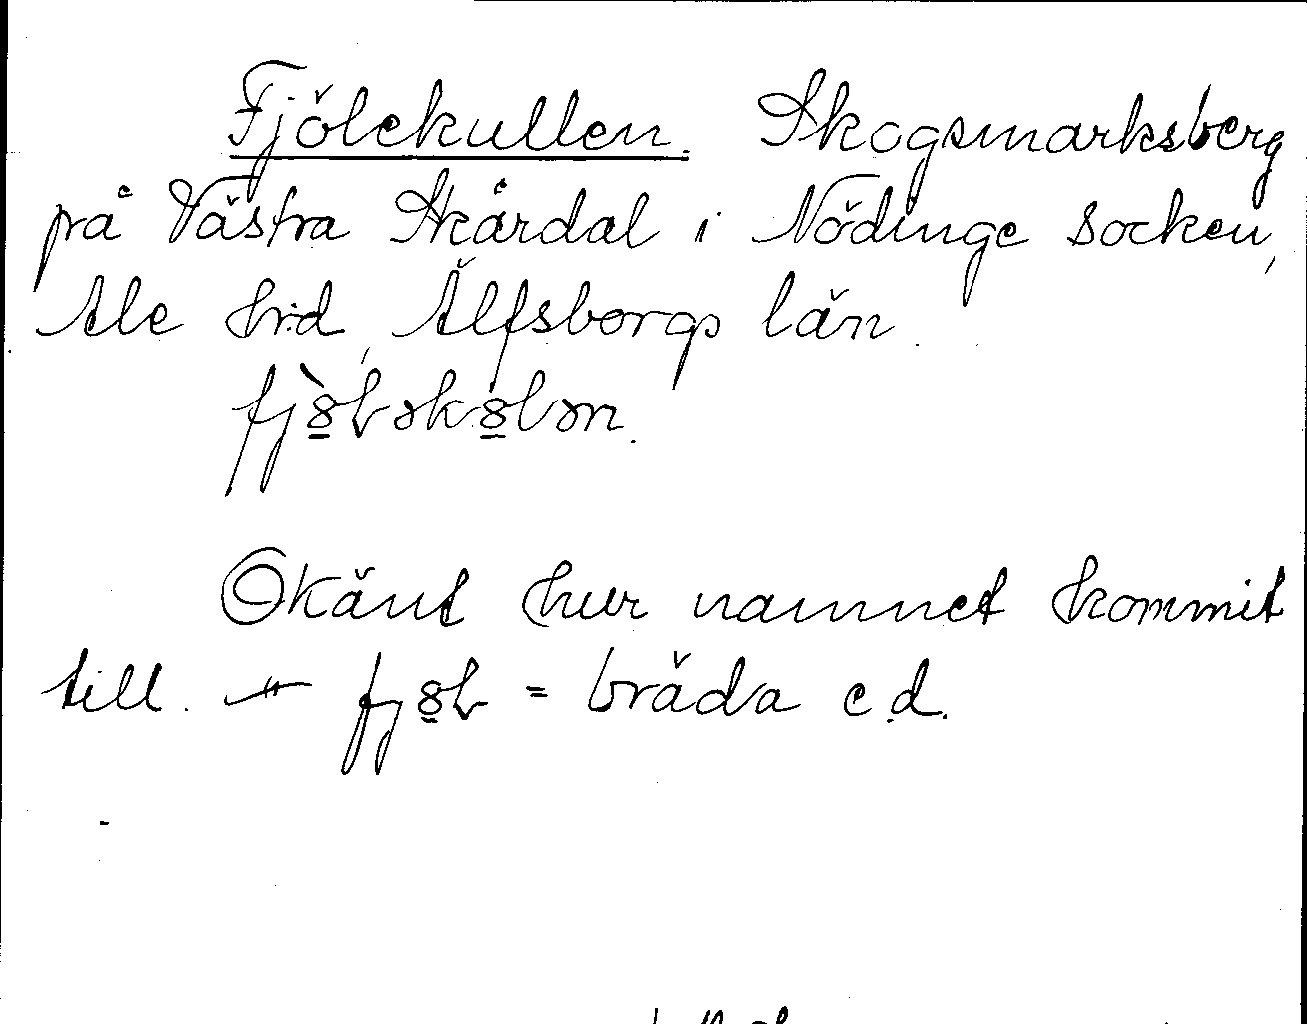 Fjölekullen. Skogsmarksberg
på Västra Skårdal i Nödinge socken,
Ale hrd, Älfsborgs län.
Okänt hur namnet kommit
till. = bräda e.d.